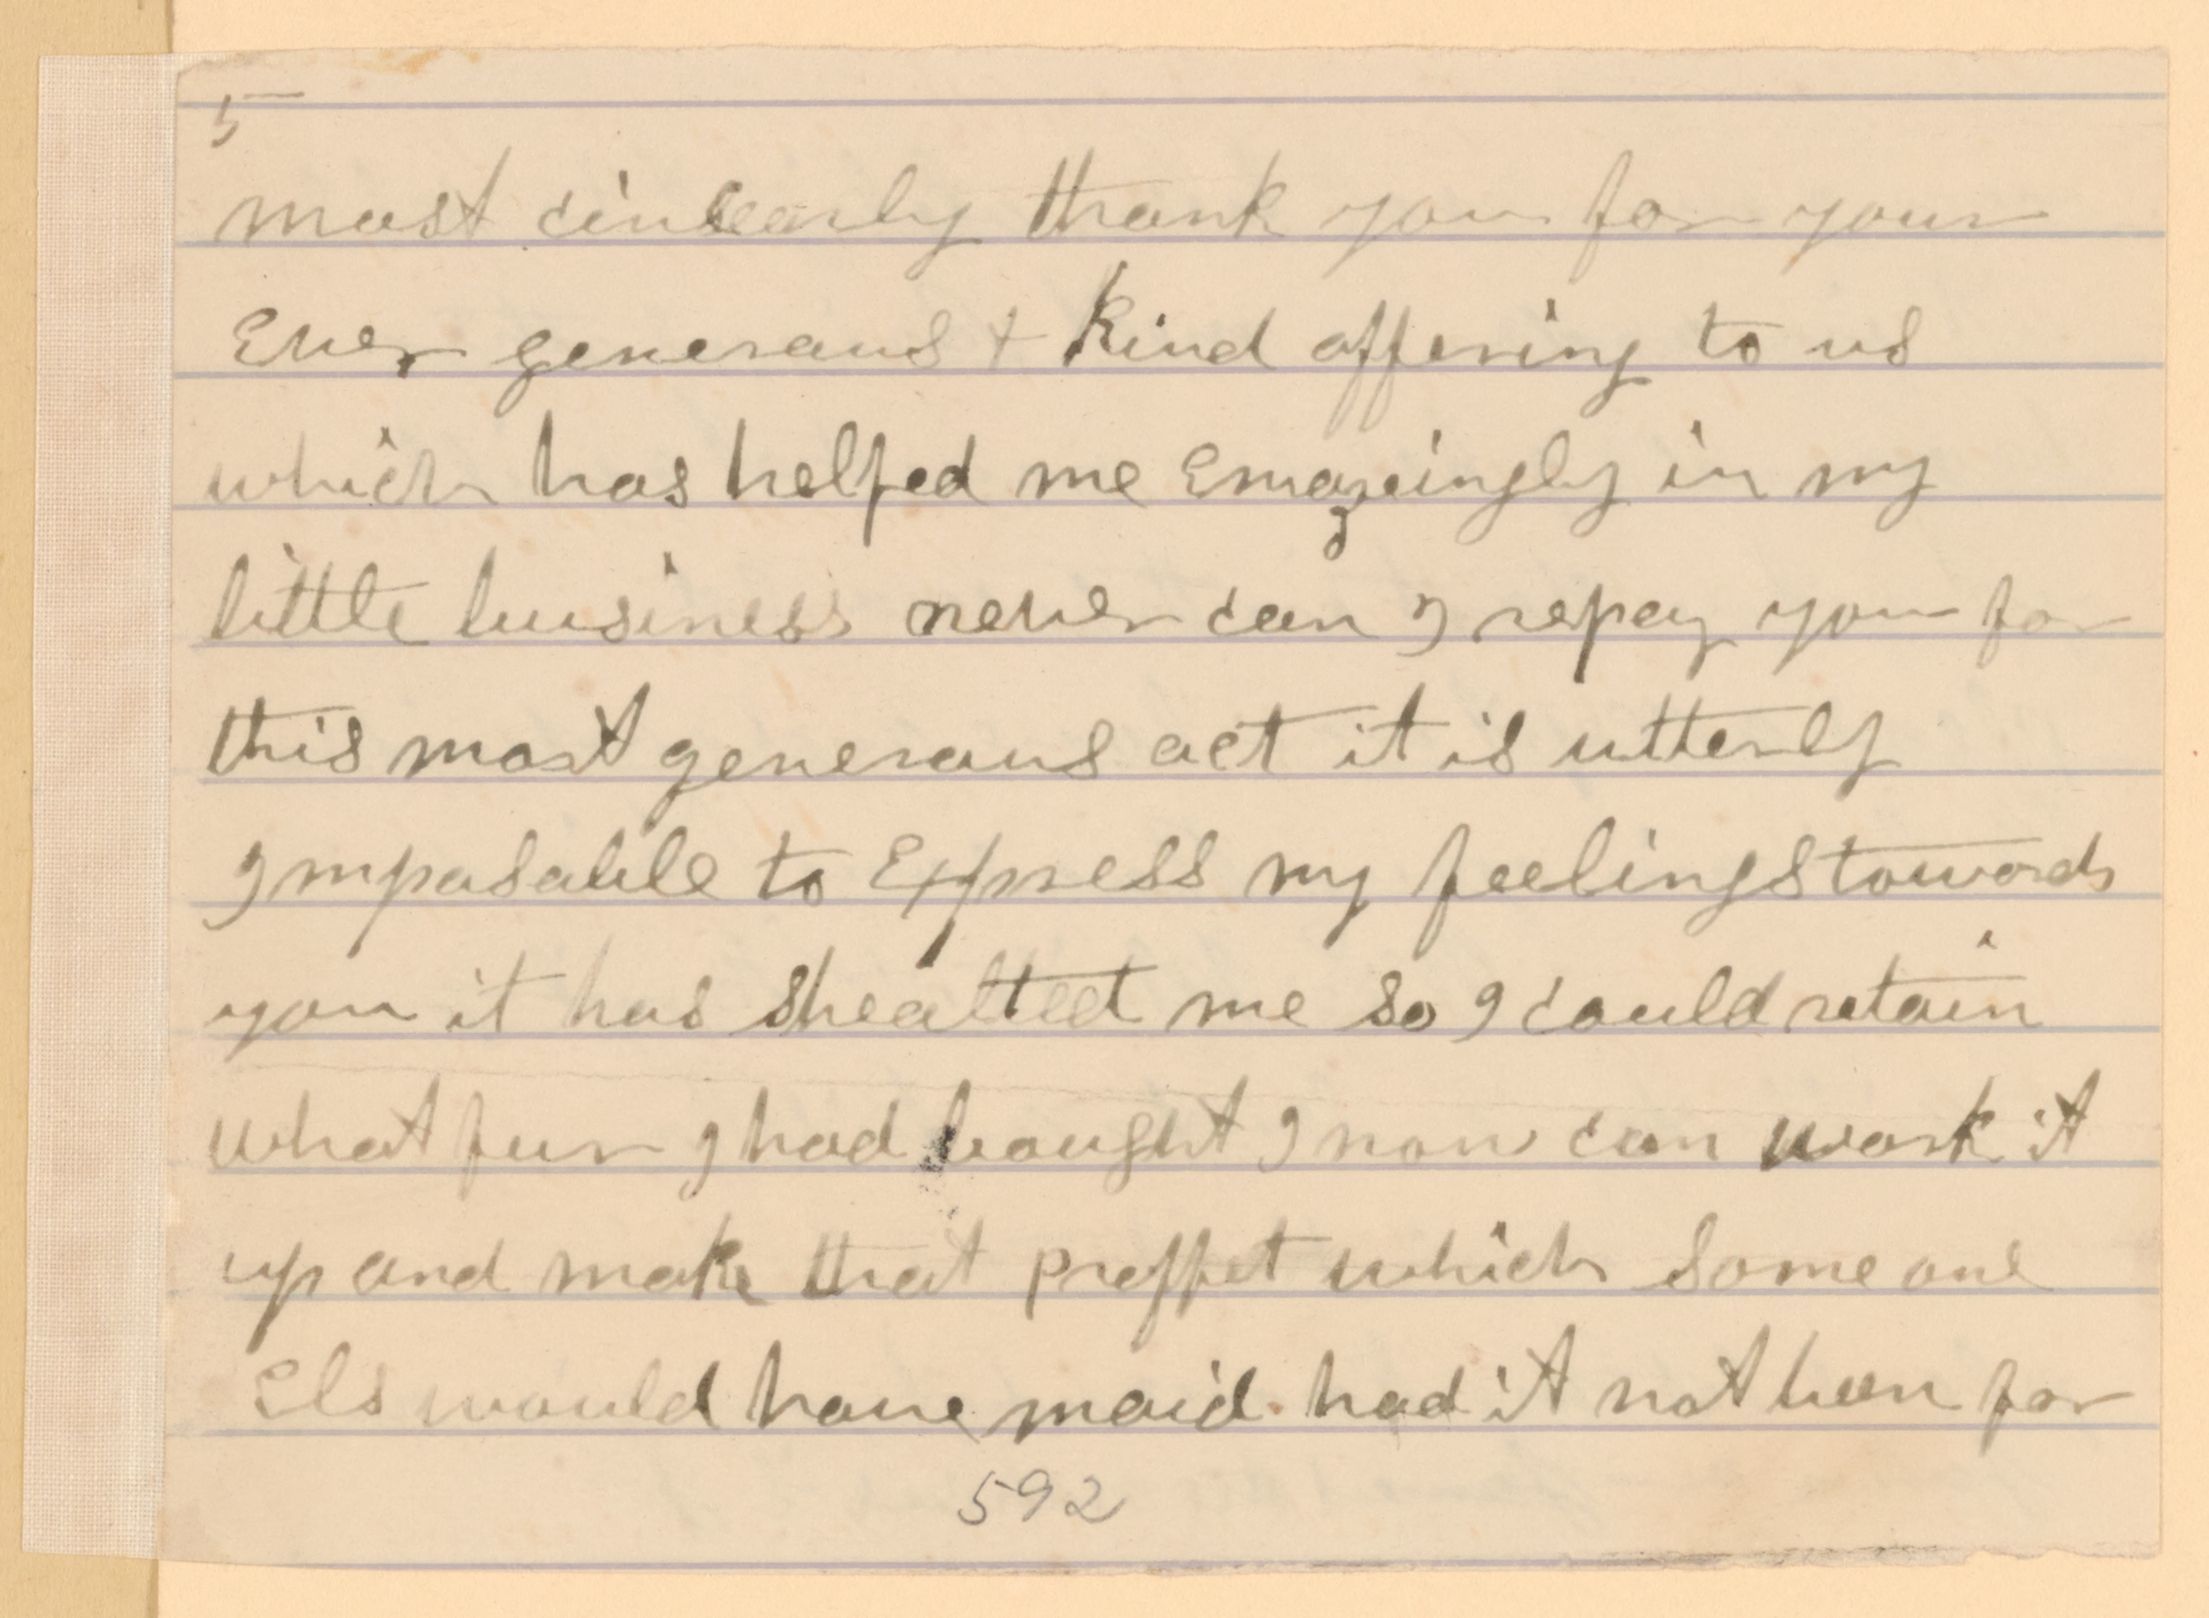 5
most cincearly thank you for your
Ever generous + Kind offering to us
which has helped me Emazeingly in my
little business never can I repay you for
this most generous act it is utterly
Imposable to Express my feelings towards
you it has me so I could retain
what fur I had bought I now can work it
up and make that proffet which Some one
Els would have maid. had it not been for
592